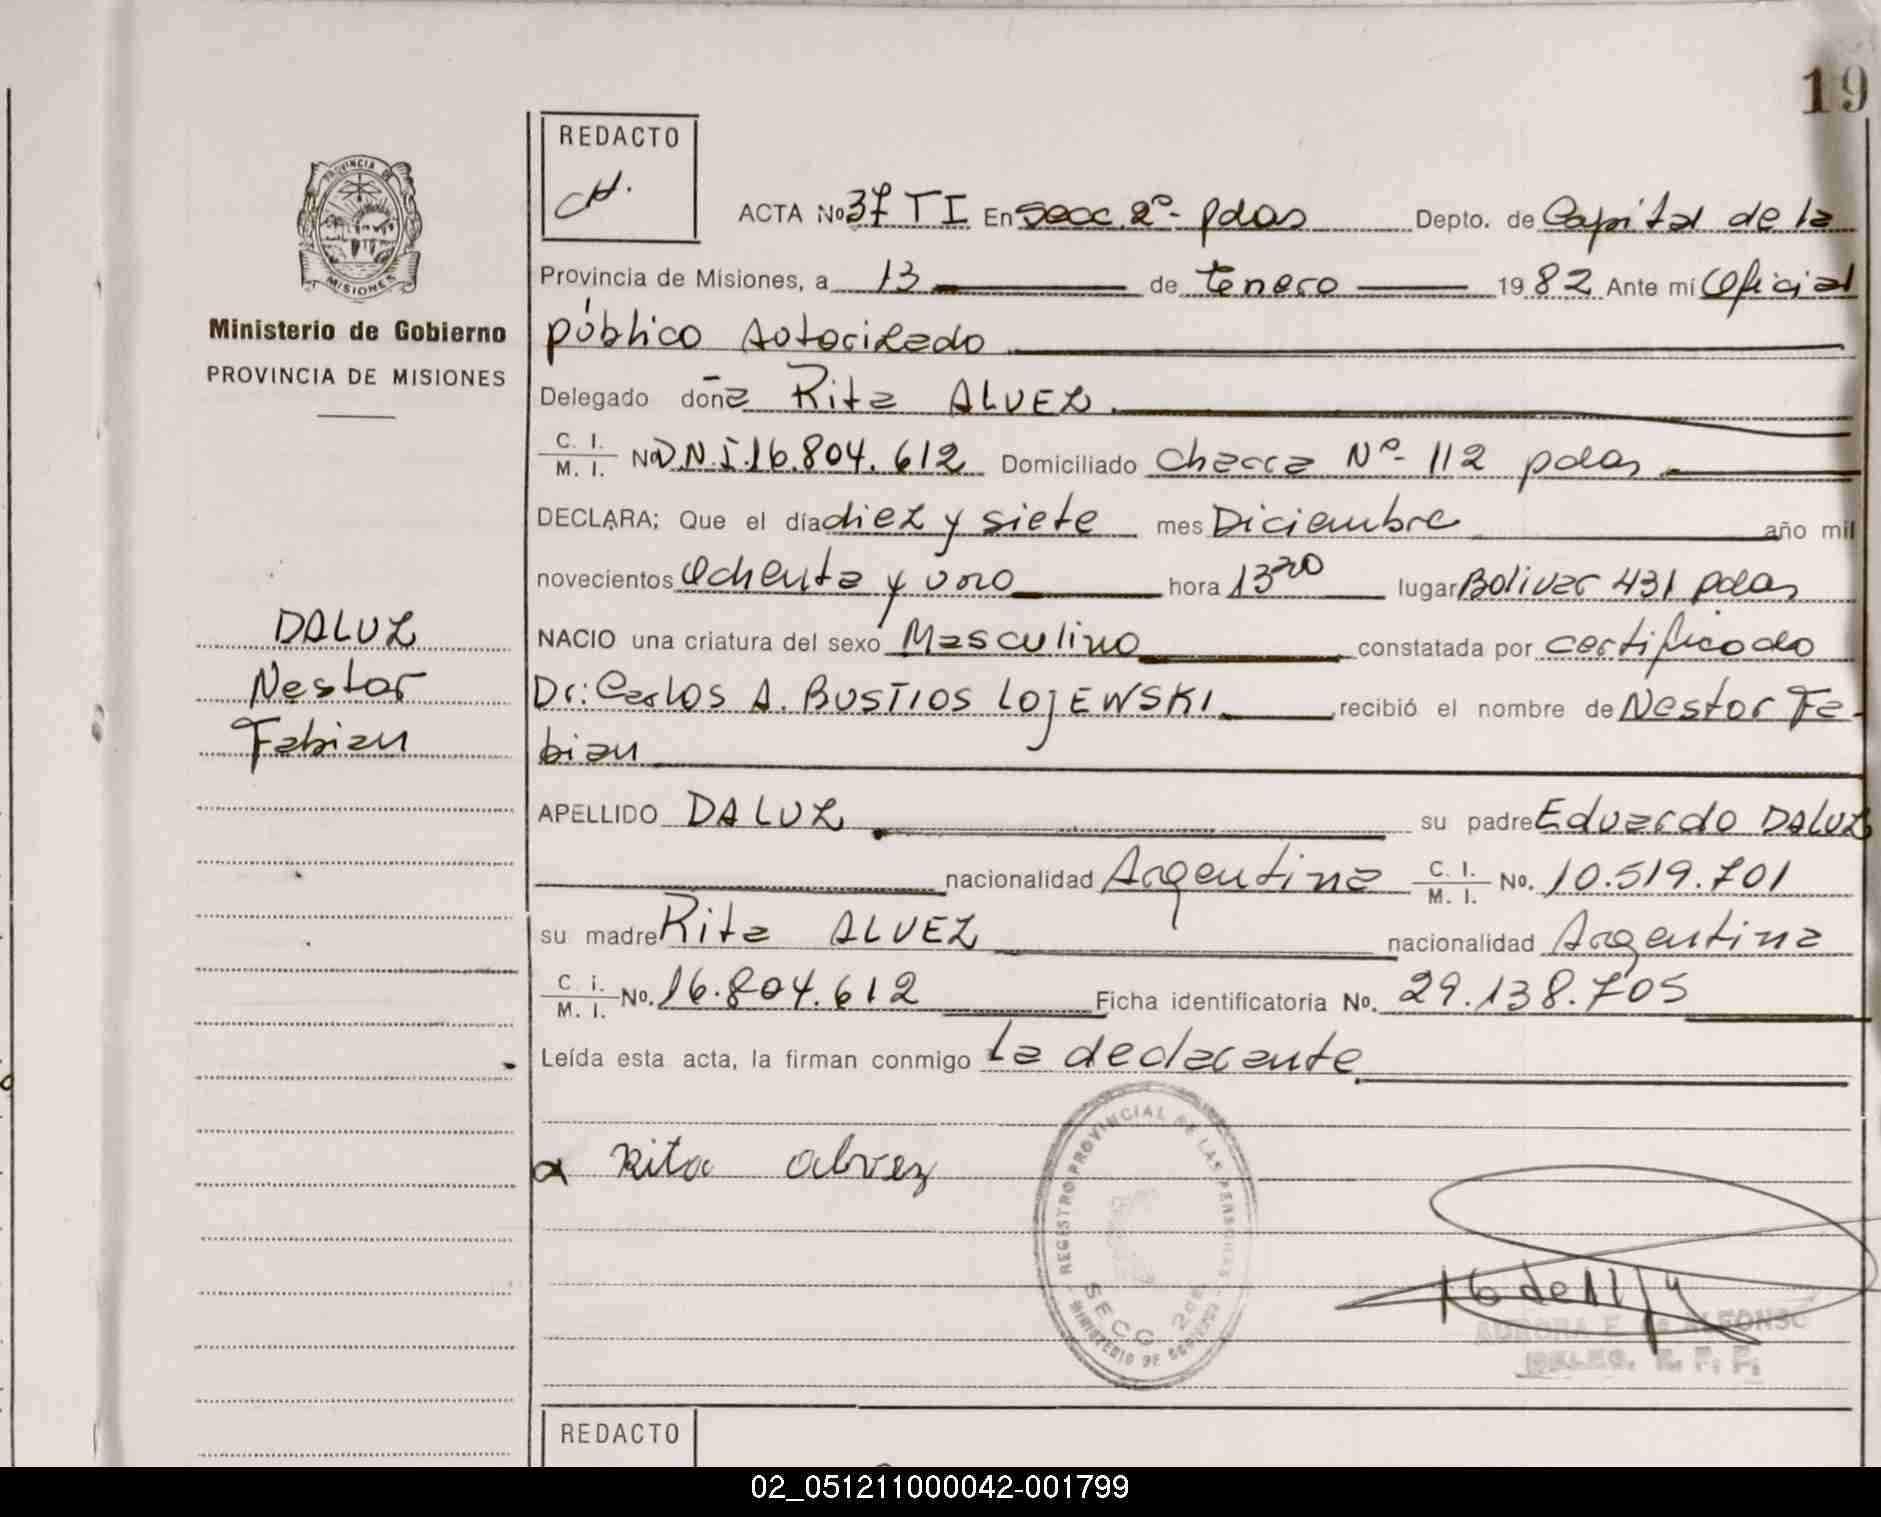 19
REDACTO
PROVINCIA DE
MISIONES
Ministerio de Gobierno
PROVINCIA DE MISIONES
ACTA No 37 TI En Secc. 2º- pdas Depto. de Capital de la
Provincia de Misiones, a 13 de Enero 1982 Ante mí Oficial
público Autorizado
Delegado doña Rita ALVEZ
C. I. / M. I. No D.N.I. 16.804.612 Domiciliado Chacra Nº- 112 pdas
DECLARA; Que el día diez y siete mes Diciembre año mil
novecientos Ochenta y uno hora 13 20 lugar Bolivar 431 pdas
NACIO una criatura del sexo Masculino constatada por certificado
Dr: Carlos A. BUSTIOS LOJEWSKI recibió el nombre de Nestor Fa-
bian
DALUZ
Nestor
Fabian
APELLIDO DALUZ su padre Eduardo DALUZ
nacionalidad Argentina C. I. / M. I. No. 10.519.701
su madre Rita ALVEZ nacionalidad Argentina
C. i. / M. I. No. 16.804.612 Ficha identificatoria No. 29.138.705
Leída esta acta, la firman conmigo la declarante
Rita alvez
REGISTRO PROVINCIAL DE LAS PERSONAS
SECC 2da
MINISTERIO DE GOBIERNO
AURORA E. de ALFONSO
DELEG. R. P. P.
REDACTO
02_051211000042-001799